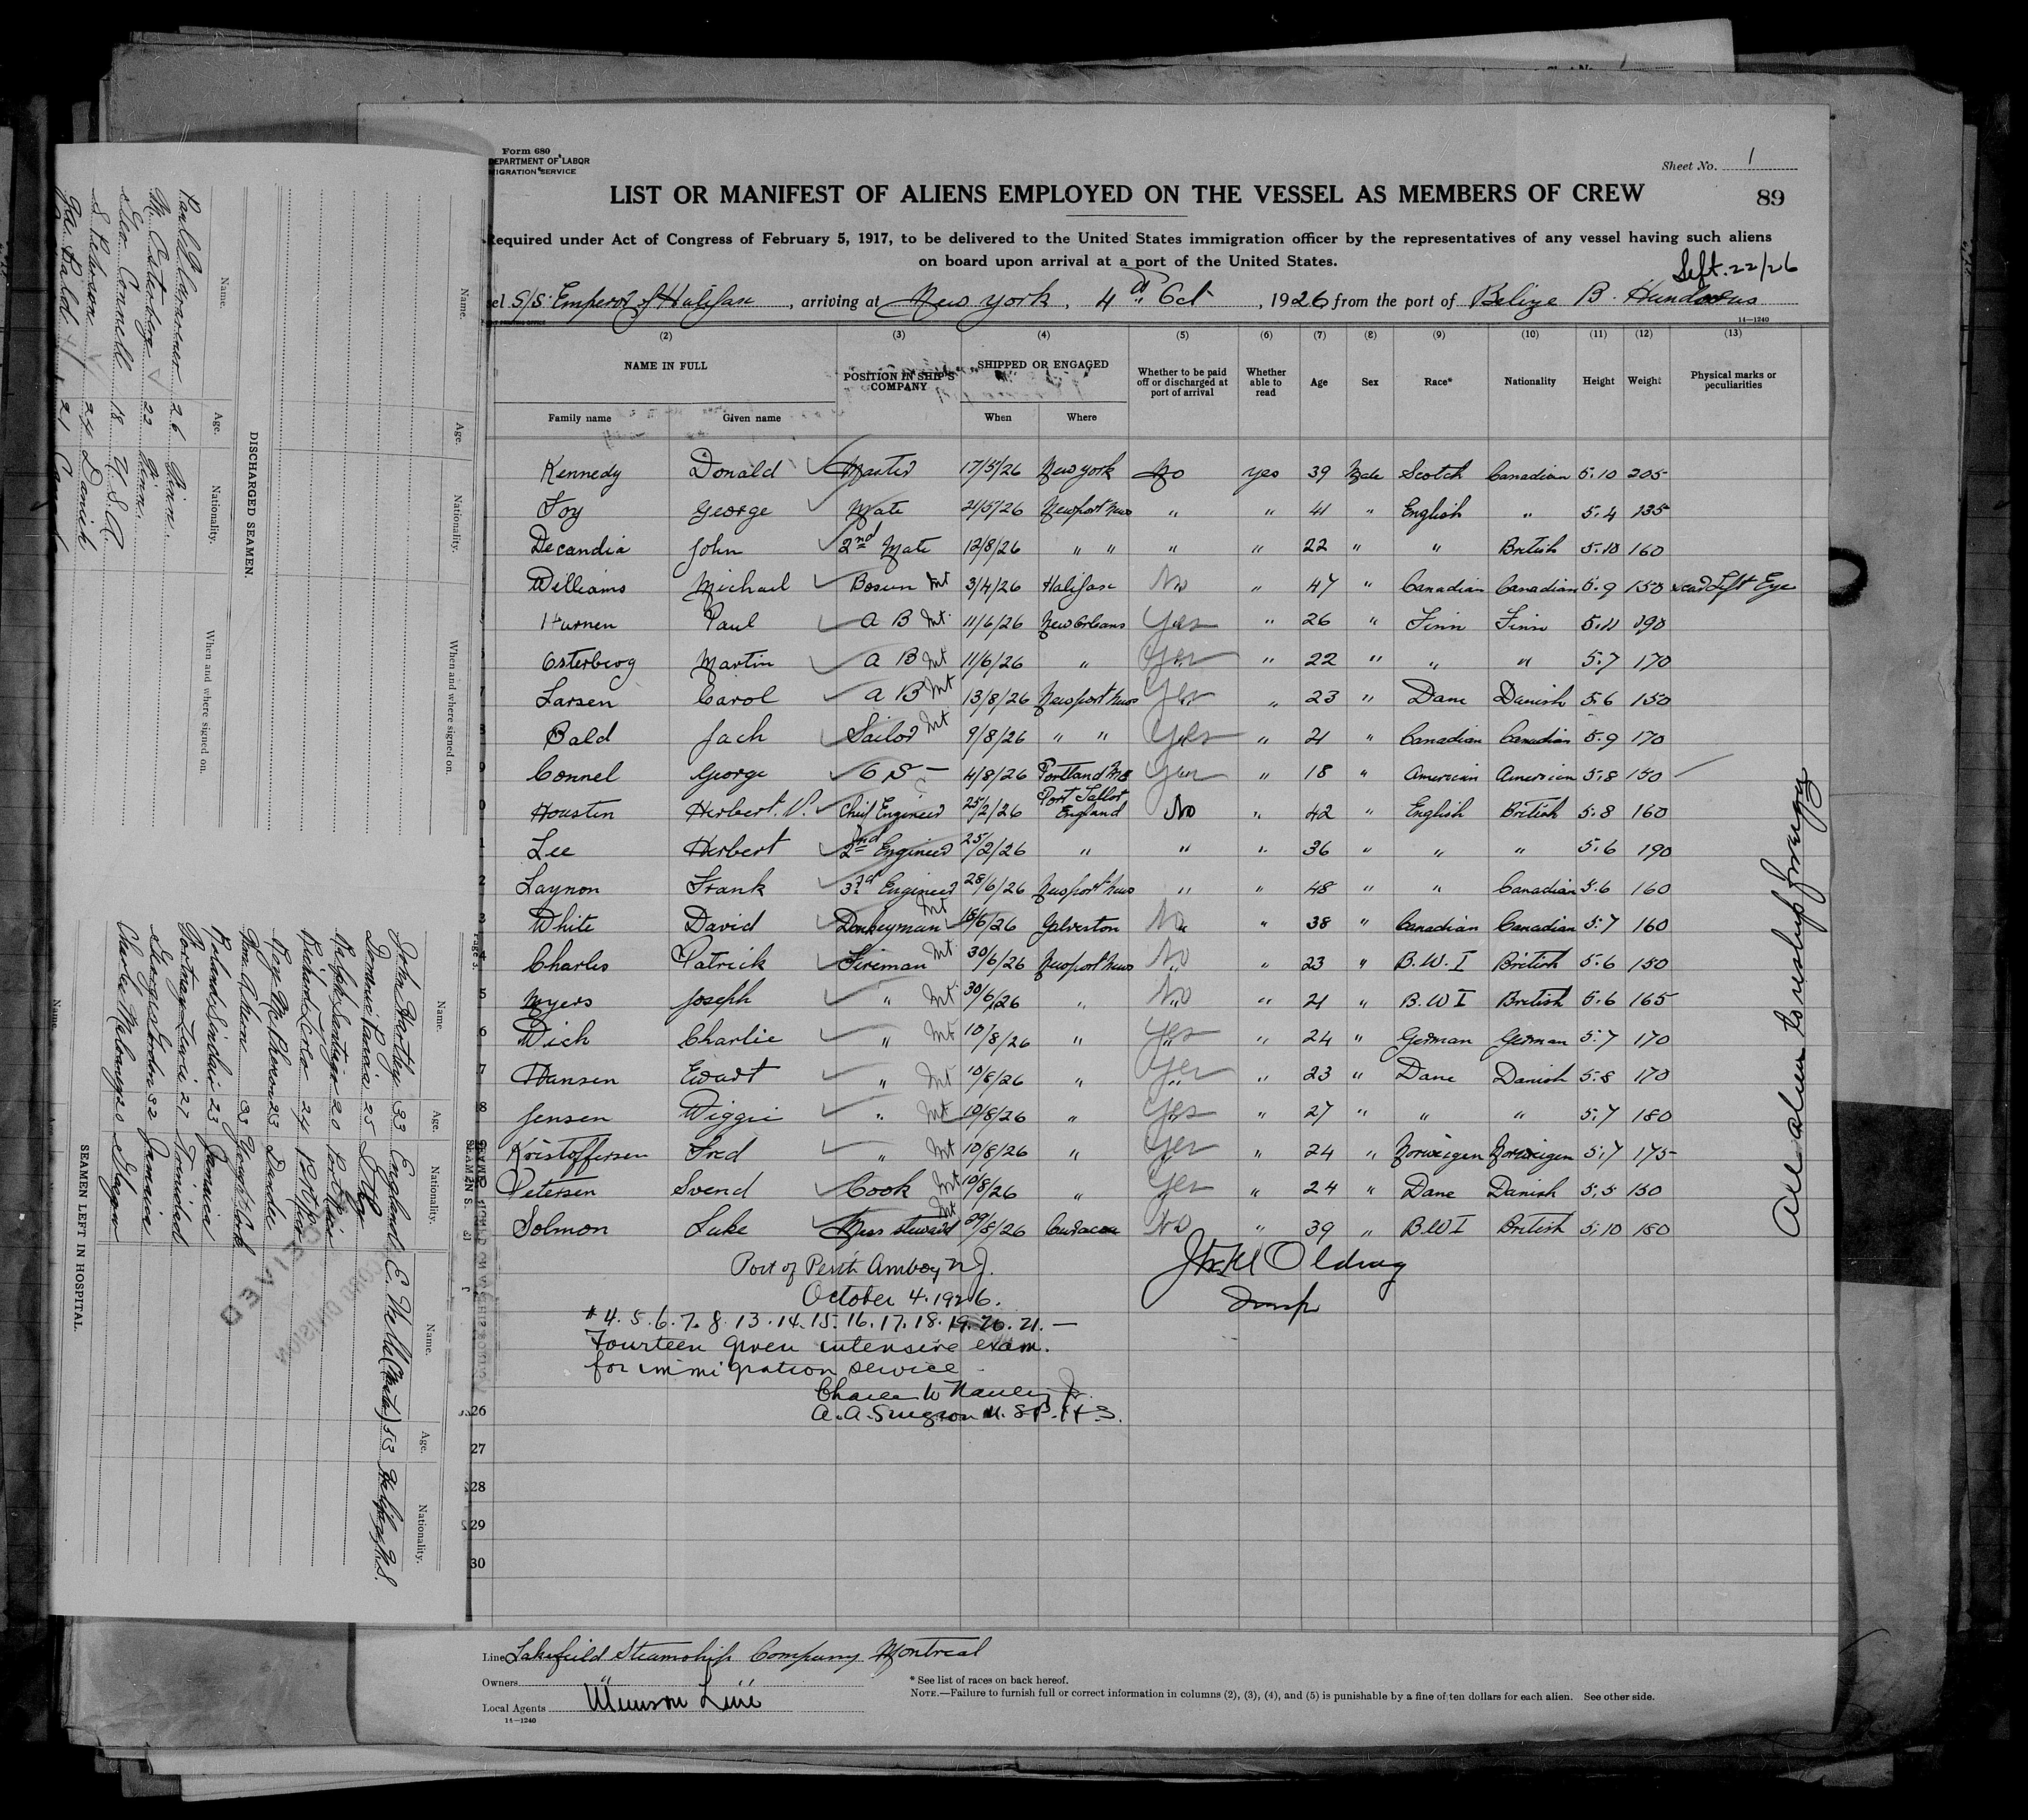 Form 680
DEPARTMENT OF LABOR
MIGRATION SERVICE
Sheet No. 1
LIST OR MANIFEST OF ALIENS EMPLOYED ON THE VESSEL AS MEMBERS OF CREW
89
Required under Act of Congress of February 5, 1917, to be delivered to the United States immigration officer by the representatives of any vessel having such aliens
on board upon arrival at a port of the United States.
Sept. 22/26
el S/S Emperor of Halifax, arriving at New York, 4th Oct, 1926 from the port of Belize B. Hundoras
14—1240
(2) (3) (4) (5) (6) (7) (8) (9) (10) (11) (12) (13)
NAME IN FULL POSITION IN SHIP'S COMPANY SHIPPED OR ENGAGED Whether to be paid off or discharged at port of arrival Whether able to read Age Sex Race* Nationality Height Weight Physical marks or peculiarities
Family name Given name When Where
Kennedy Donald Master 17/5/26 New York No Yes 39 Male Scotch Canadian 5.10 205
Foy George Mate 21/5/26 Newport News " " 41 " English " 5.4 135
Decandia John 2nd Mate 12/8/26 " " " " 22 " " British 5.10 160
Williams Michael Bosun Mt 3/4/26 Halifax No " 47 " Canadian Canadian 5.9 150 scar Left Eye
Paul A B Mt. 11/6/26 New Orleans Yes " 26 " Finn Finn 5.11 190
Osterberg Martin A B Mt 11/6/26 " Yes " 22 " " " 5.7 170
Larsen Carol A B Mt 13/8/26 Newport News Yes " 23 " Dane Danish 5.6 150
Bald Jack Sailor Mt 9/8/26 " " Yes " 21 " Canadian Canadian 5.9 170
Connel George O S — 4/8/26 Portland Me Yes " 18 " American American 5.8 150
Houston Herbert. V. Chief Engineer 25/2/26 Port Talbot England No " 42 " English British 5.8 160
Lee Herbert 2nd Engineer 25/2/26 " " " 36 " " " 5.6 190
Laynon Frank 3rd Engineer 28/6/26 Newport News " " 48 " " Canadian 5.6 160
White David Donkeyman Mt 15/6/26 Galveston No " 38 " Canadian Canadian 5.7 160
Charles Patrick Fireman Mt 30/6/26 Newport News No " 23 " B.W.I British 5.6 150
Myers Joseph " Mt 30/6/26 " No " 21 " B.W I British 5.6 165
Dich Charlie " Mt 10/8/26 " Yes " 24 " German German 5.7 170
Hansen Ewart " Mt 10/8/26 " Yes " 23 " Dane Danish 5.8 170
Jensen Wiggie " Mt 10/8/26 " Yes " 27 " " " 5.7 180
Kristoffersen Fred " Mt 10/8/26 " Yes " 24 " Norweigen Norweigen 5.7 175
Petersen Svend Cook Mt 10/8/26 " Yes " 24 " Dane Danish 5.5 150
Solmon Luke Mess Steward Mt 29/8/26 Curacoa No " 39 " B.W I British 5.10 150
Port of Perth Amboy N J.
October 4. 1926.
# 4. 5. 6. 7. 8. 13. 14. 15. 16. 17. 18. 19. 20. 21. —
Fourteen given intensive exam.
for immigration service
Charles W Jr.
A. A. Surgeon U. S P. H. S.
26
27
28
29
30
All aliens to reship foreign
Line Lakefield Steamship Company Montreal
Owners " "
Local Agents Munson Line
14—1240
* See list of races on back hereof.
NOTE.—Failure to furnish full or correct information in columns (2), (3), (4), and (5) is punishable by a fine of ten dollars for each alien. See other side.
Name. Age. Nationality. When and where signed on.
DISCHARGED SEAMEN.
Name. Age. Nationality. When and where signed on.
26 Finn.
M. Osterberg 22 Finn.
Geo Connell 18 U.S.A.
24 Danish
Bald 21
Name. Age. Nationality. Name. Age. Nationality.
John Hartley 33 England E. Vella (Malta) 53 Halifax N.S.
25
Ralph Santiago 20
24
Roy McPherson 23
33
Roland Sinclair 23 Jamaica
Lewis 27 Trinidad
George Gordon 32 Jamaica
Charlie
RECEIVED
SEAMEN LEFT IN HOSPITAL.